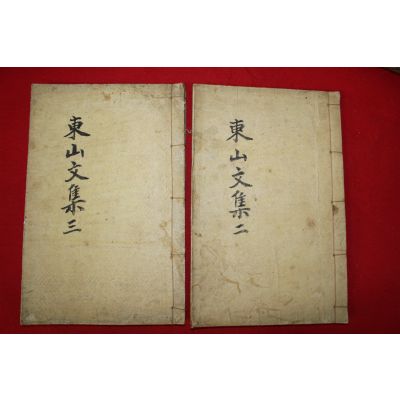 東山文集二
東山文集三